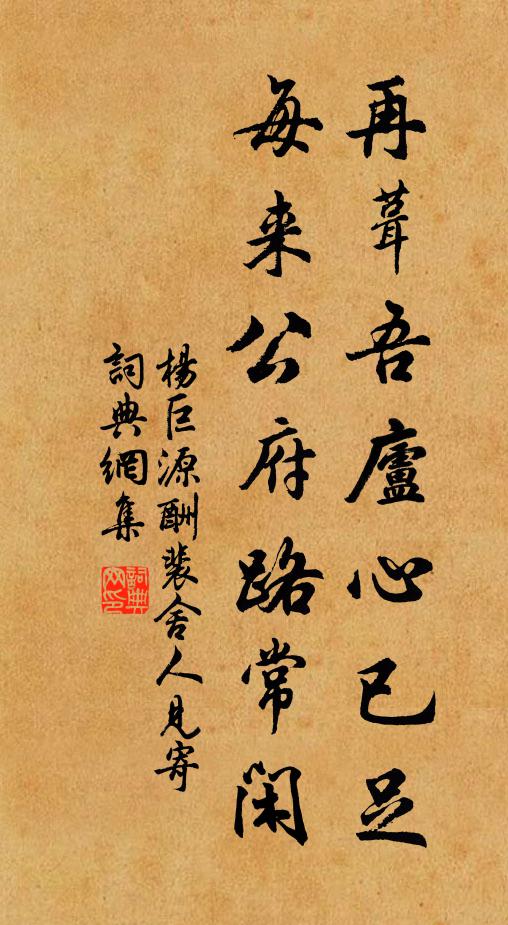 再葺吾廬心已足
每来公府路常閑
楊巨源酬裴舍人見寄
詞典網集
詞典
网印